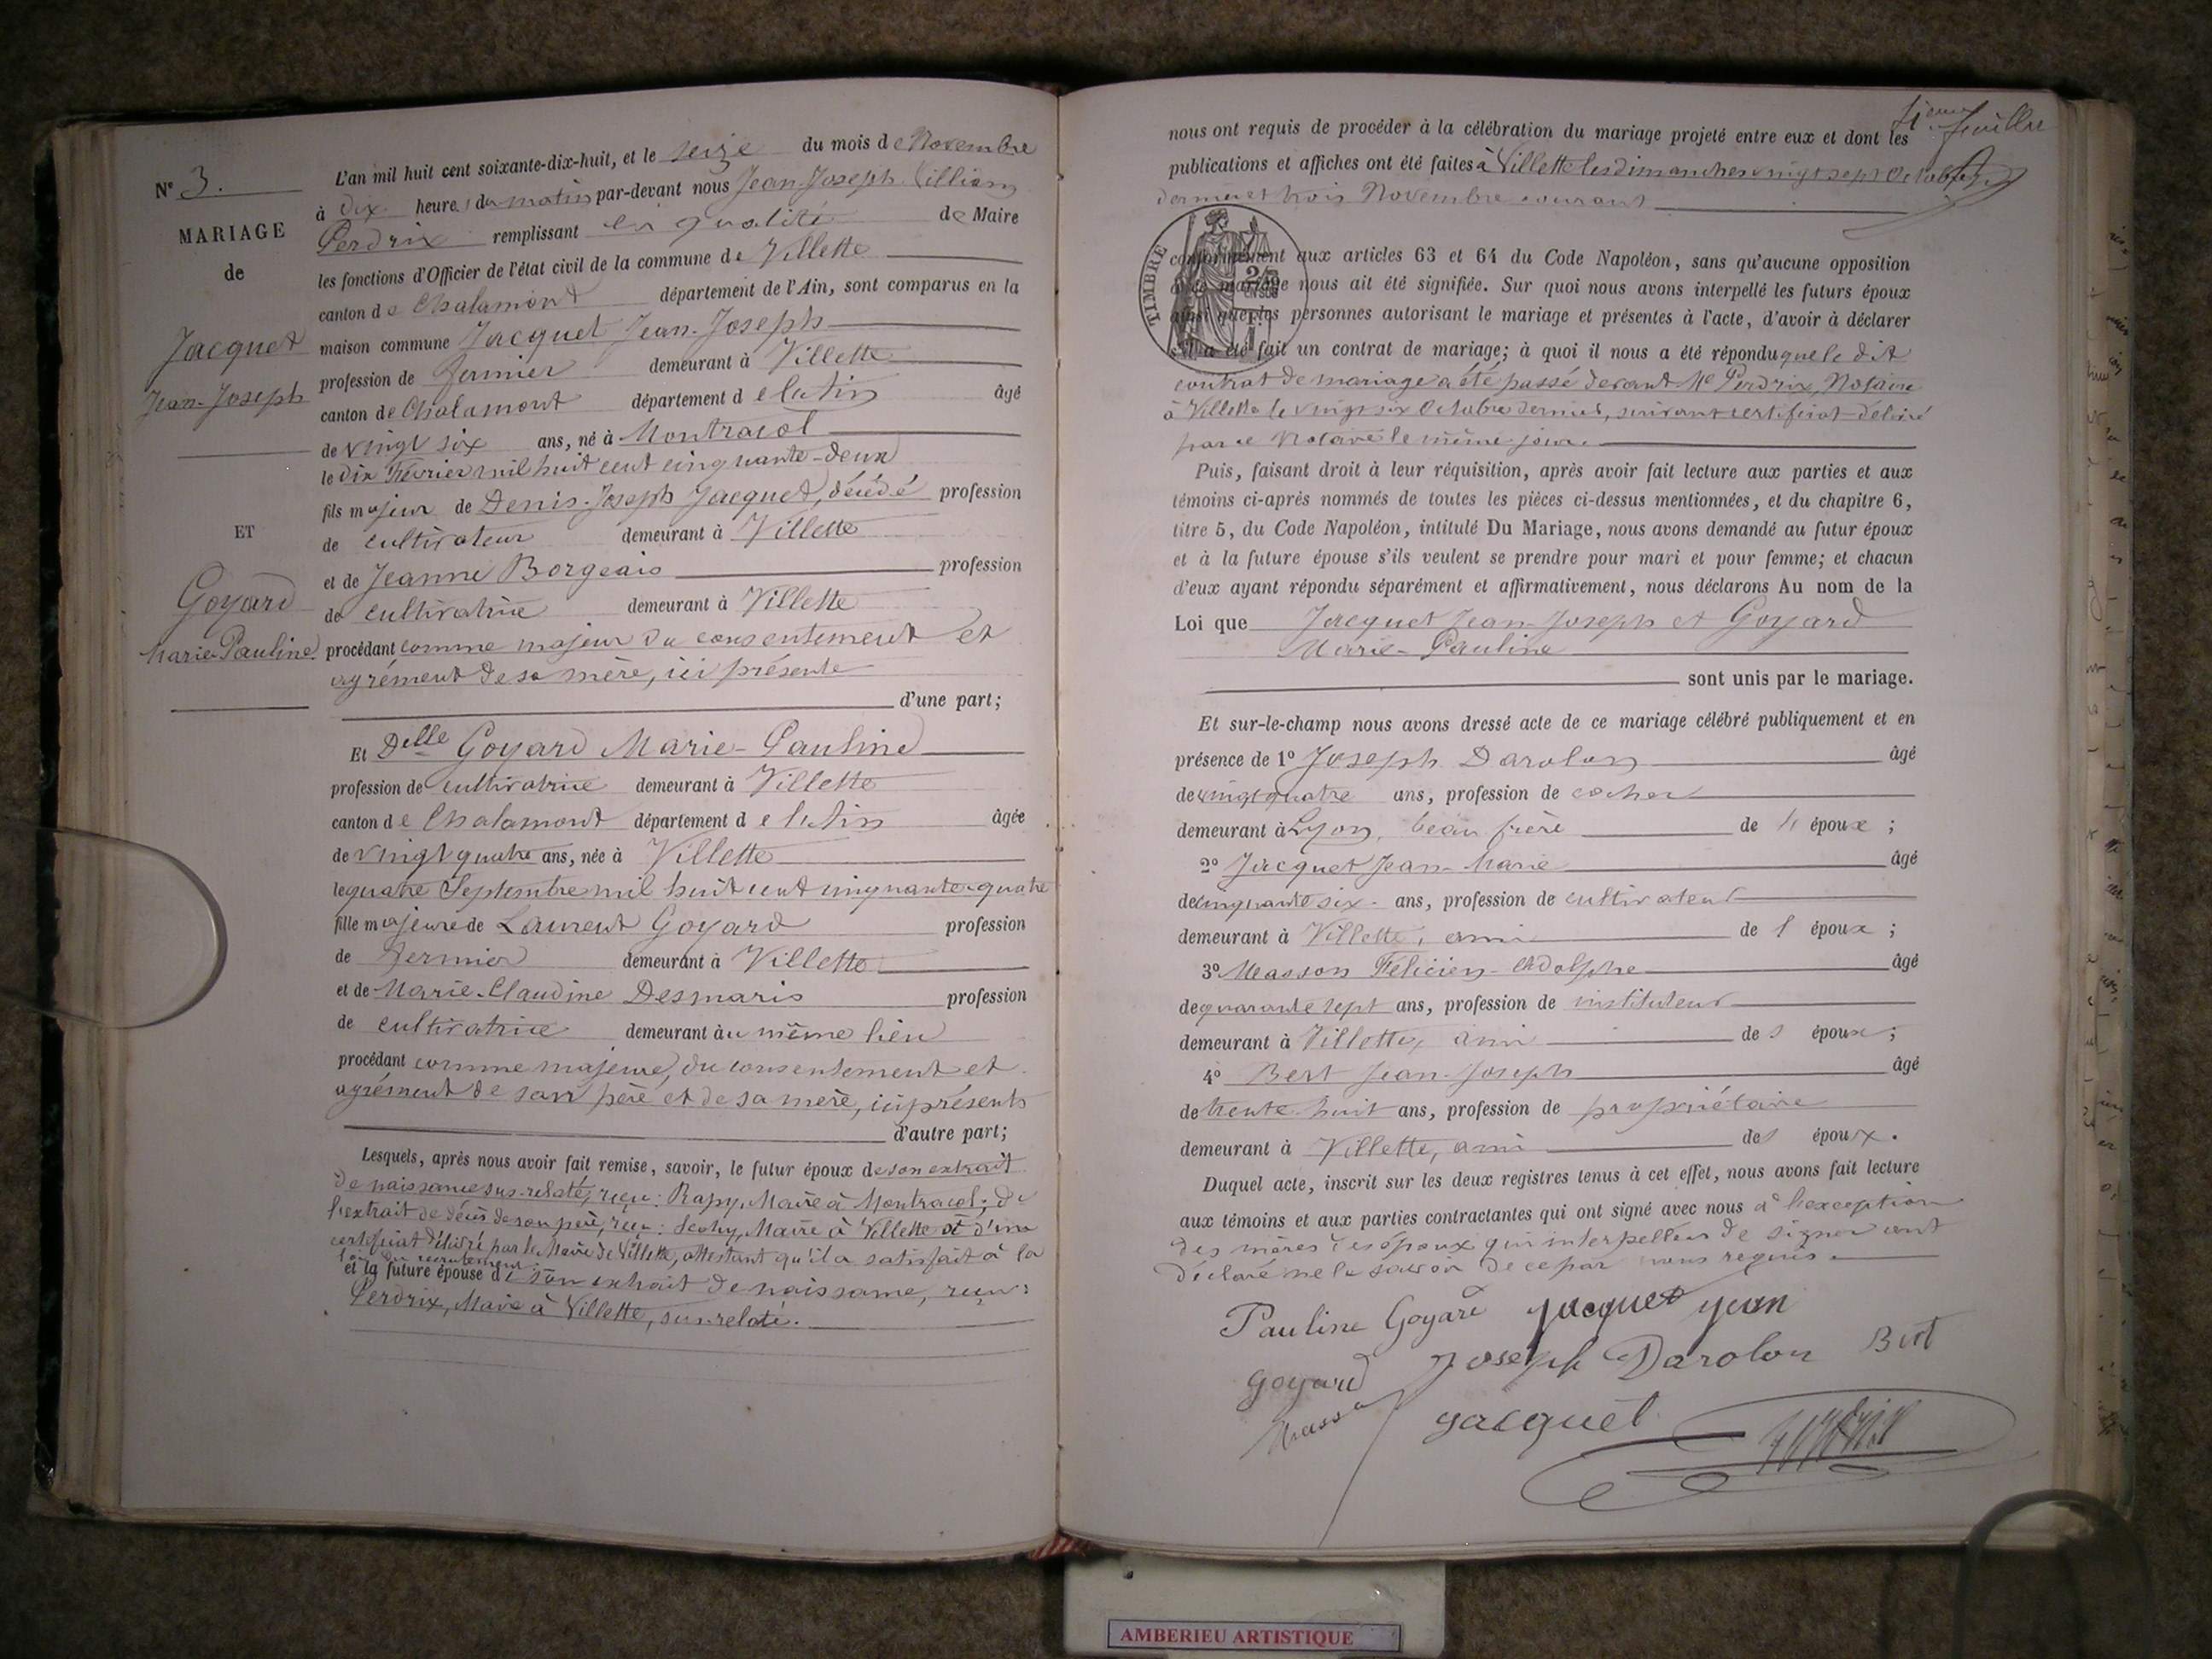 N° 3.
MARIAGE
de
Jacquet
Jean-Joseph
ET
Goyard
Marie-Pauline.
L'an mil huit cent soixante-dix-huit, et le seize du mois de Novembre
à dix heures du matin par-devant nous Jean-Joseph
Perdrix remplissant en qualité de Maire
les fonctions d'Officier de l'état civil de la commune de Villette
canton de Chalamont département de l'Ain, sont comparus en la
maison commune Jacquet Jean-Joseph
profession de fermier demeurant à Villette
canton de Chalamont département de l'Ain âgé
de vingt six ans, né à Montracol
le dix Février mil huit cent cinquante-deux
fils majeur de Denis-Joseph Jacquet, décédé profession
de cultivateur demeurant à Villette
et de Jeanne Borgeais profession
de cultivatrice demeurant à Villette
procédant comme majeur du consentement et
agrément de sa mère, ici présente
d'une part;
Et Delle Goyard Marie-Pauline
profession de cultivatrice demeurant à Villette
canton de Chalamont département de l'Ain âgée
de vingt quatre ans, née à Villette
le quatre Septembre mil huit cent cinquante-quatre
fille majeure de Laurent Goyard profession
de fermier demeurant à Villette
et de Marie-Claudine Desmaris profession
de cultivatrice demeurant au même lieu
procédant comme majeure, du consentement et
agrément de son père et de sa mère, ici présents
d'autre part;
Lesquels, après nous avoir fait remise, savoir, le futur époux de son extrait
de naissance sus-relaté, reçu: Rapy, Maire à Montracol; de
l'extrait de décès de son père, reçu: Maire à Villette et d'un
certificat délivré par le Maire de Villette, attestant qu'il a satisfait à la
loi du recrutement.
et la future épouse de son extrait de naissance, reçu:
Perdrix, Maire à Villette, sus-relaté.
4ième feuillre
nous ont requis de procéder à la célébration du mariage projeté entre eux et dont les
publications et affiches ont été faites à Villette les dimanches vingt sept Octobre
dernier et trois Novembre courant
TIMBRE
conformément aux articles 63 et 64 du Code Napoléon, sans qu'aucune opposition
audit mariage nous ait été signifiée. Sur quoi nous avons interpellé les futurs époux
ainsi que les personnes autorisant le mariage et présentes à l'acte, d'avoir à déclarer
s'il a été fait un contrat de mariage; à quoi il nous a été répondu que le dit
contrat de mariage a été passé devant Me Perdrix, Notaire
à Villette le vingt six Octobre dernier, suivant certificat délivré
par ce Notaire le même jour.
Puis, faisant droit à leur réquisition, après avoir fait lecture aux parties et aux
témoins ci-après nommés de toutes les pièces ci-dessus mentionnées, et du chapitre 6,
titre 5, du Code Napoléon, intitulé Du Mariage, nous avons demandé au futur époux
et à la future épouse s'ils veulent se prendre pour mari et pour femme; et chacun
d'eux ayant répondu séparément et affirmativement, nous déclarons Au nom de la
Loi que Jacquet Jean-Joseph et Goyard
Marie-Pauline
sont unis par le mariage.
Et sur-le-champ nous avons dressé acte de ce mariage célébré publiquement et en
présence de 1° Joseph Darolon âgé
de vingt quatre ans, profession de cocher
demeurant à Lyon, beau frère de l' époux;
2° Jacquet Jean-Marie âgé
de cinquante six ans, profession de cultivateur
demeurant à Villette, ami de l' époux;
3° Masson Félicien-Adolphe âgé
de quarante sept ans, profession de instituteur
demeurant à Villette, ami des époux;
4° Bert Jean-Joseph âgé
de trente-huit ans, profession de propriétaire
demeurant à Villette, ami des époux.
Duquel acte, inscrit sur les deux registres tenus à cet effet, nous avons fait lecture
aux témoins et aux parties contractantes qui ont signé avec nous à l'exception
des mères des époux qui interpellées de signer ont
déclaré ne le savoir de ce par nous requis.
Pauline Goyard Jacquet Jean
Goyard Joseph Darolon Bert
Masson Jacquet
AMBERIEU ARTISTIQUE